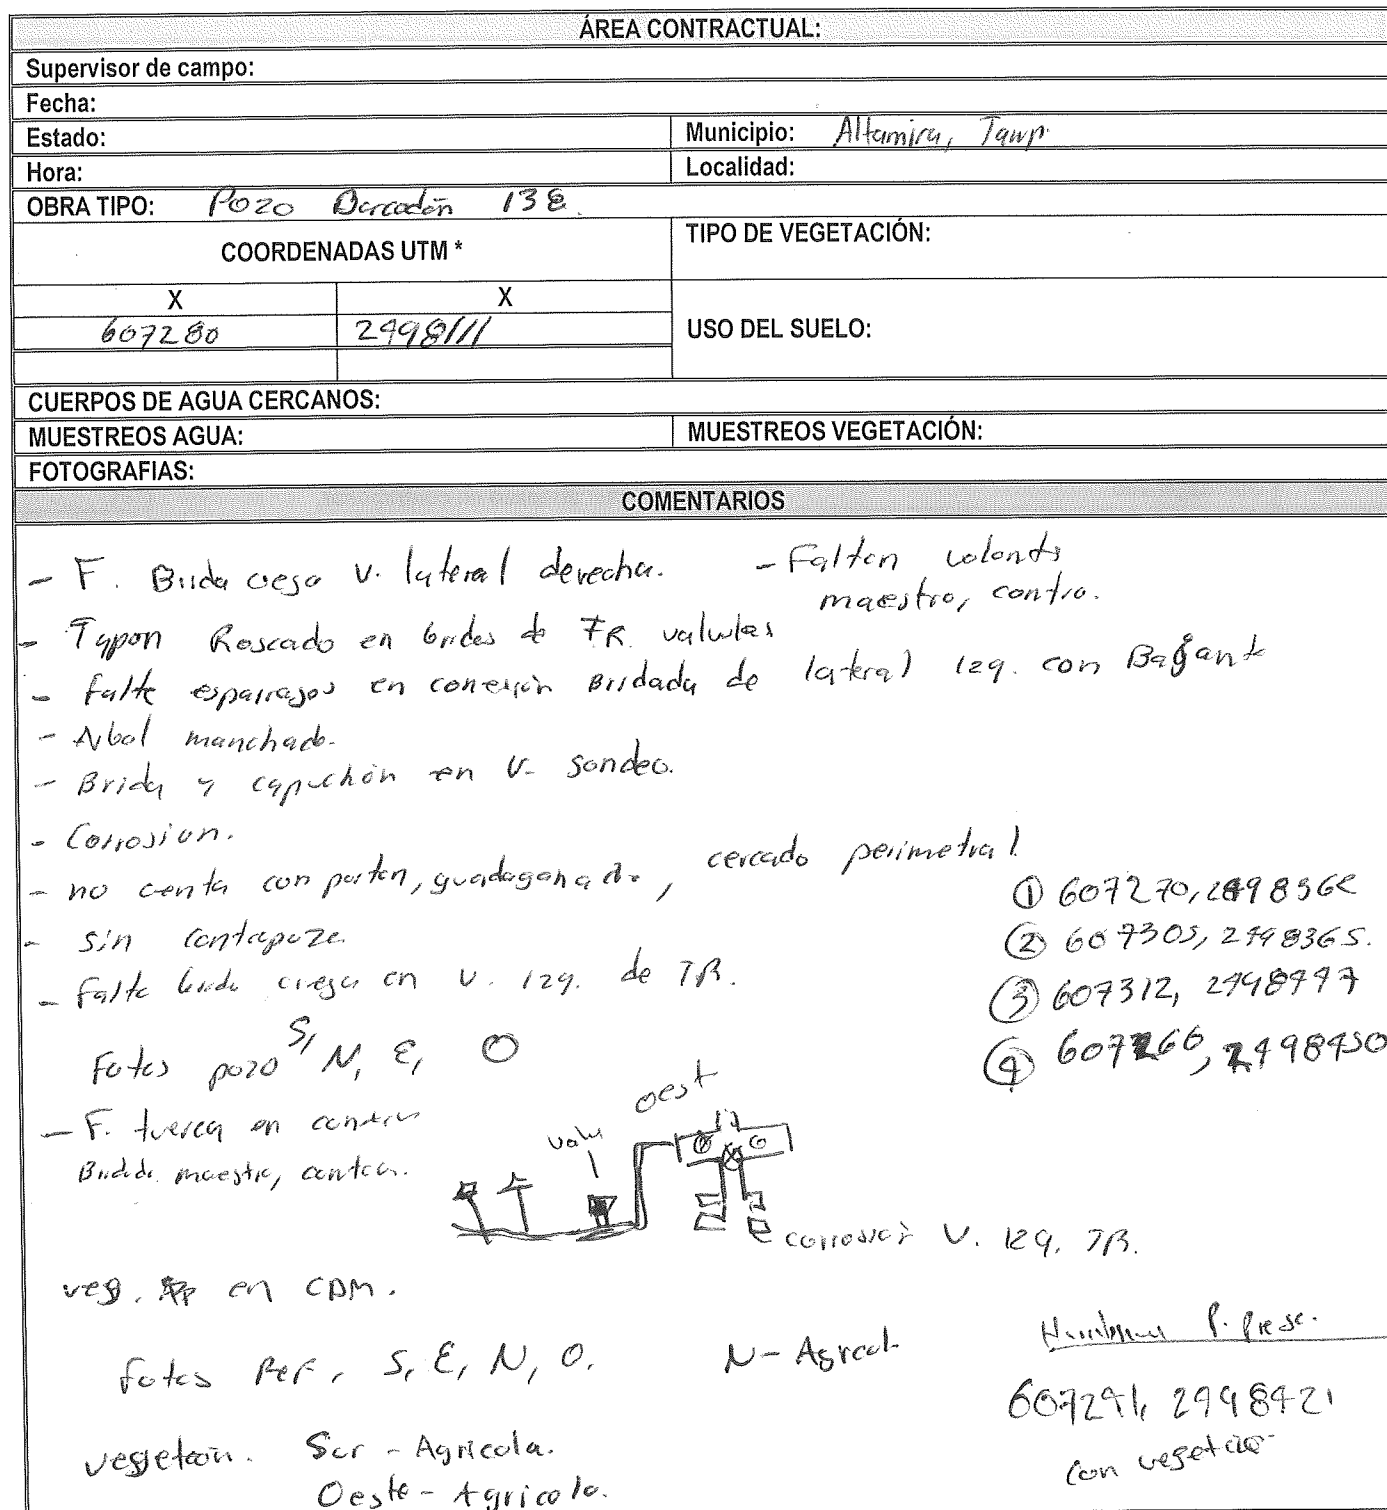 ÁREA CONTRACTUAL:
Supervisor de campo:
Fecha:
Estado: Municipio: Altamira, Tamp.
Hora: Localidad:
OBRA TIPO: Pozo Barcodón 138.
COORDENADAS UTM * TIPO DE VEGETACIÓN:
X X
607280 2498111 USO DEL SUELO:
CUERPOS DE AGUA CERCANOS:
MUESTREOS AGUA: MUESTREOS VEGETACIÓN:
FOTOGRAFIAS:
COMENTARIOS
- F. Brida ciega V. lateral derecha. - Faltan volants
maestro, contra.
- Tapon Roscado en bridas de TR. valvulas
- falte esparragos en conexión Bridada de lateral izq. con Bajante
- Arbol manchado.
- Brida y capuchón en V. sondeo.
- Corrosion.
- no centa con porton, guardaganado, cercado perimetral
- sin contrapozo
- falte brida ciega en V. izq. de TR.
① 607270, 249836
② 607305, 2498365.
③ 607312, 2498447
④ 607266, 2498450
Fotos pozo S, N, E, O
- F. tuerca en
Bridada maestra, contra.
valv
oest
corrosion V. izq. TR.
veg. en CDM.
fotos Ref, S, E, N, O. N - Agricol.
P. Presc.
607291, 2498421
con vegetacio
vegetacion. Sur - Agricola.
Oeste - Agricola.